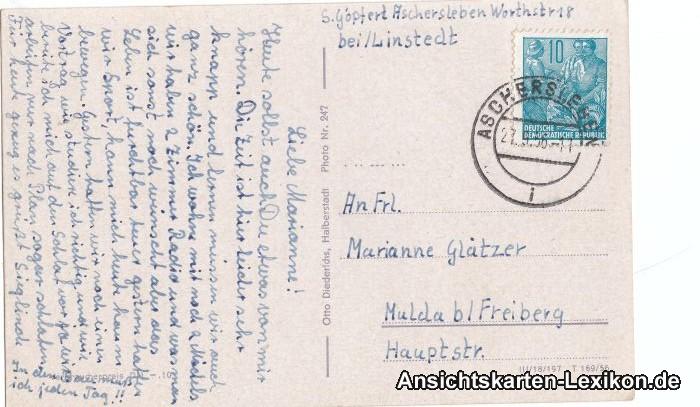 S. Göpfert Aschersleben Worthstr 18
bei/Linstedt
10
DEUTSCHE
DEMOKRATISCHE REPUBLIK
ASCHERSLEBEN
i
An Frl.
Marianne Glätzer
Mulda b/Freiberg
Hauptstr.
III/18/197 T 169/56
Otto Diederichs, Halberstadt Photo Nr. 247
Liebe Marianne!
Heute sollst auch Du etwas von mir
hören. Die Zeit ist hier leider sehr
knapp und lernen müssen wir auch
ganz schön. Ich wohne mit noch 2 Mädels
wir haben 2 Zimmer Radio und was man
sich sonst noch wünscht aber das
Leben ist furchtbar teuer gestern hatten
wir Sport, kann mich heut kaum
bewegen. Gestern hatten wir noch einen
Vortrag wie studiere ich richtig und wie
bereite ich mich auf den Schlaf vor ja wir
arbeiten nur nach Plan sogar schlafen
Für heute genug es grüßt Sieglinde
In den muß
ich jeden Tag!!
Ansichtskarten-Lexikon.de